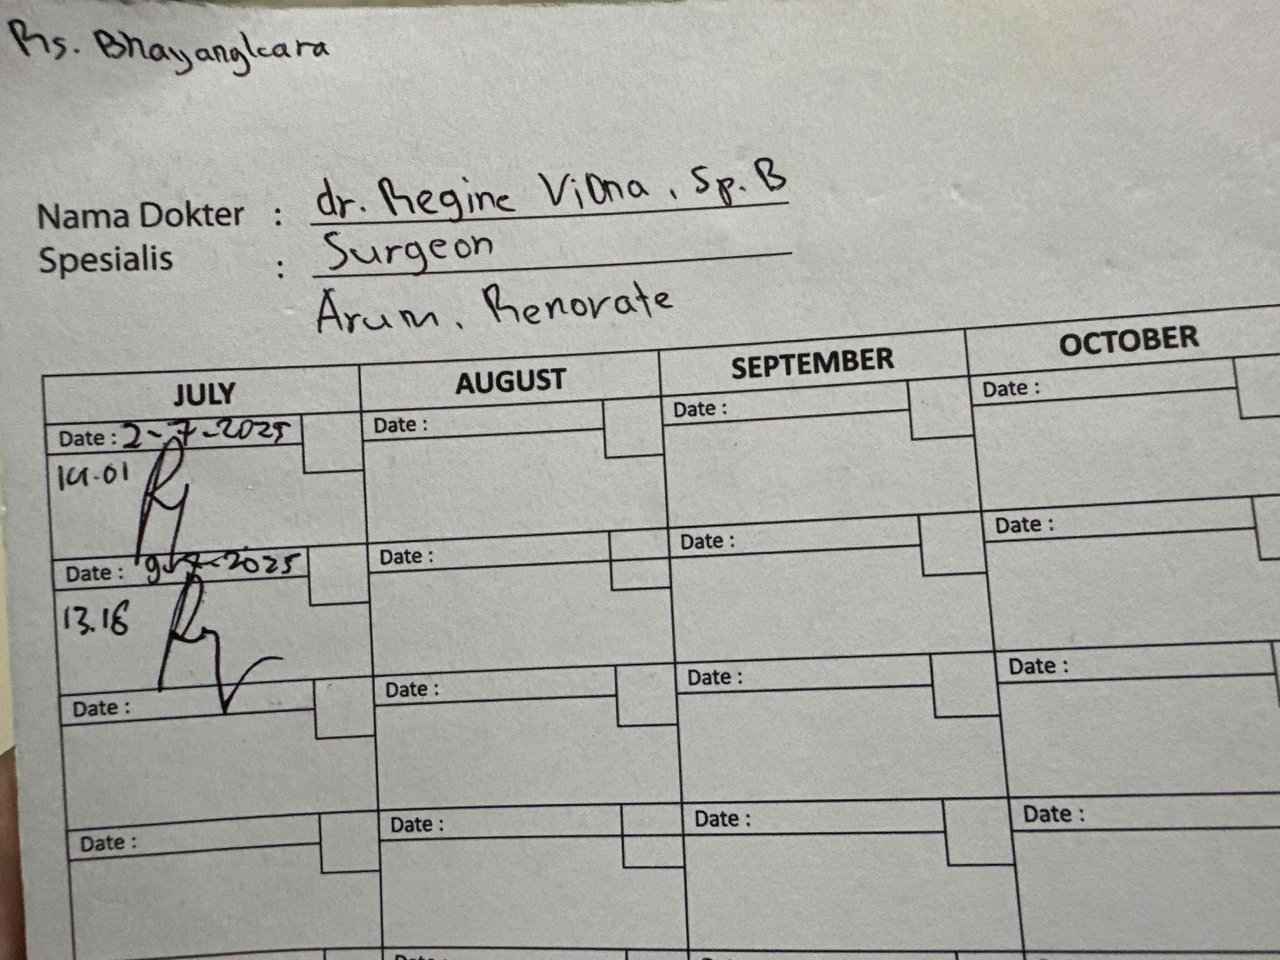 Rs. Bhayangkara
Nama Dokter : dr. Regine Viona, Sp.B
Spesialis : Surgeon
Arum, Renovate
JULY AUGUST SEPTEMBER OCTOBER
Date : 2-7-2025 Date : Date : Date :
14.01
Date : 9-7-2025 Date : Date : Date :
13.18
Date : Date : Date : Date :
Date : Date : Date : Date :
Date : Date :